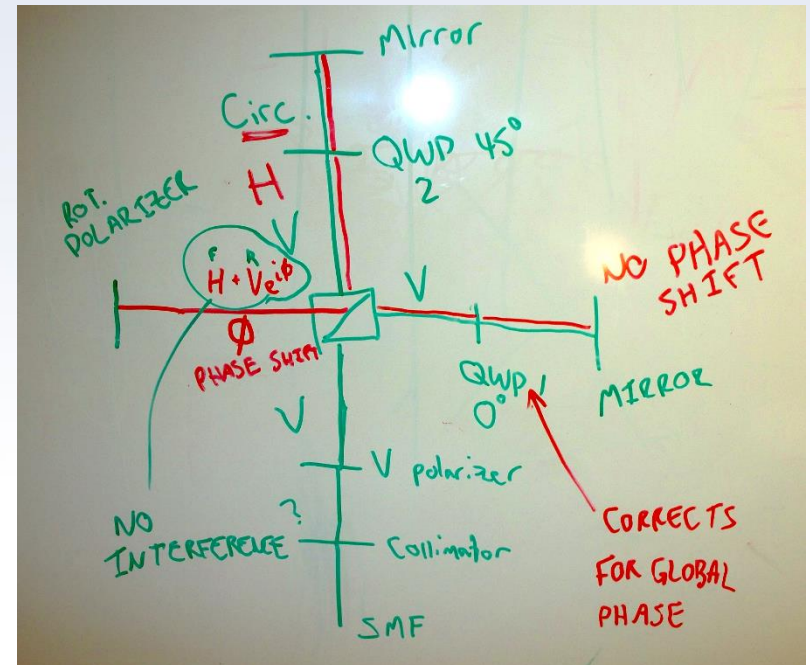 Mirror
Circ.
QWP 45°
2
H
V
ROT.
POLARIZER
F R
H + Ve^iø
V
NO PHASE
SHIFT
Ø
PHASE SHIFT
QWP 1
0°
MIRROR
V
V polarizer
NO
INTERFERENCE?
Collimator
SMF
CORRECTS
FOR GLOBAL
PHASE